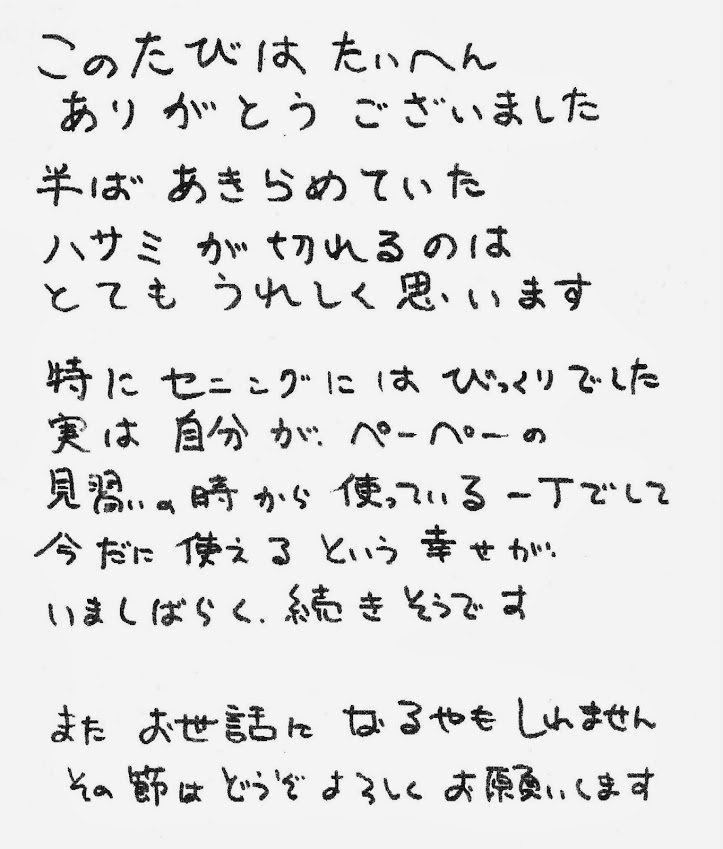 このたびは たいへん
ありがとう ございました
半ば あきらめていた
ハサミ が 切れるのは
とても うれしく 思います
特に セニングには びっくりでした
実は 自分が、ペーペーの
見習いの時から 使っている 一丁でして
今だに 使える という 幸せが、
いましばらく、続きそうです
また お世話に なるやも しれません
その節は どうぞ よろしく お願いします